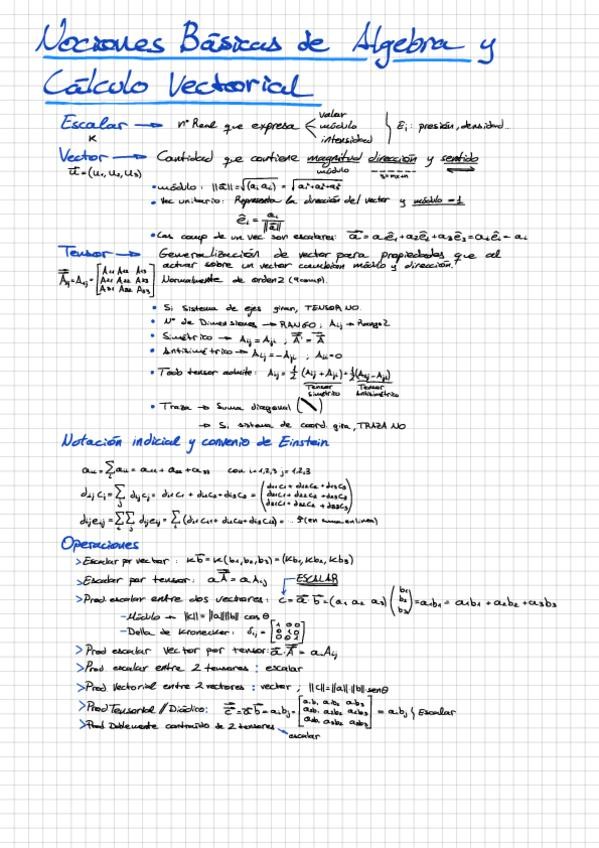 Nociones Básicas de Algebra y
Cálculo Vectorial
Escalar → nº Real que expresa < valor módulo intensidad } Ej: presión, densidad...
K
Vector → Cantidad que contiene magnitud dirección y sentido
ū = (u₁, u₂, u₃) módulo
• módulo: ||ā|| =
• Vec unitario: Representa la dirección del vector y módulo = 1
ê₁ = a₁ / ||ā||
• Las comp de un vec son escalares: ā = a₁ê₁ + a₂ê₂ + a₃ê₃ =
Tensor → Generalización de vector para propiedades que al
actuar sobre un vector cambian módulo y dirección.
Normalmente de orden 2 (9 comp).
• Si sistema de ejes giran, TENSOR NO.
• Nº de Dimensiones → RANGO; Aij → Rango 2
• Simétrico → Aij = Aji
• Antisimétrico → Aij = -Aji ; Aii = 0
• Todo tensor admite: Aij = ½ (Aij + Aji) + ½ (Aij - Aji)
Tensor simétrico Tensor Antisimétrico
• Traza → Suma diagonal (\)
→ Si sistema de coord. gira, TRAZA NO
Notación indicial y convenio de Einstein
aii = Σ aii = a₁₁ + a₂₂ + a₃₃ con i = 1,2,3 j = 1,2,3
dij cj = Σ dij cj = di1 c1 + di2 c2 + di3 c3 =
dij eij = Σ Σ dij eij =
Operaciones
> Escalar por vector: k b̄ = k (b₁, b₂, b₃) = (kb₁, kb₂, kb₃)
> Escalar por tensor: a Ā = a Aij ESCALAR
> Prod escalar entre dos vectores: c = ā · b̄ = (a₁ a₂ a₃) (b₁ b₂ b₃) = aibi = a₁b₁ + a₂b₂ + a₃b₃
– Módulo → ||c|| = ||a|| ||b|| cos θ
– Delta de Kronecker: δij = [1 0 0 0 1 0 0 0 1]
> Prod escalar vector por tensor: ā · Ā = ai Aij
> Prod. escalar entre 2 tensores: escalar
> Prod. Vectorial entre 2 vectores: vector; ||c|| = ||a|| · ||b|| · sen θ
> Prod Tensorial // Diádico: = ai bj = [a₁b₁ a₁b₂ a₁b₃ a₂b₁ a₂b₂ a₂b₃ a₃b₁ a₃b₂ a₃b₃] = ai bj } Escalar
> Prod Doblemente contraído de 2 tensores
escalar